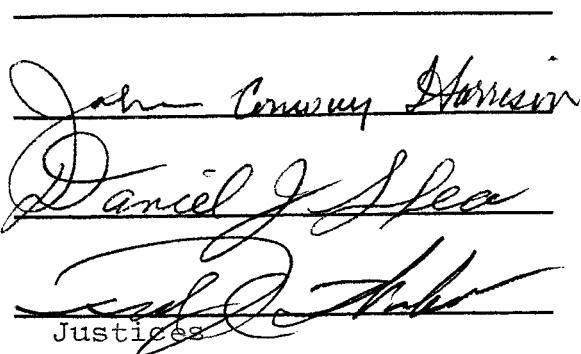 John Conway Harrison
Daniel J. Shea
Justices